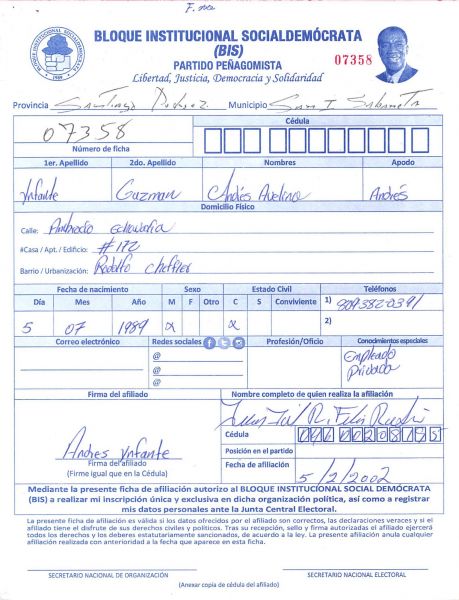 BLOQUE INSTITUCIONAL SOCIALDEMÓCRATA
(BIS)
PARTIDO PEÑAGOMISTA
Libertad, Justicia, Democracia y Solidaridad
BLOQUE INSTITUCIONAL SOCIALDEMOCRATA
1989
07358
Provincia Santiago Municipio San I Sabaneta
07358
Número de ficha
Cédula
1er. Apellido 2do. Apellido Nombres Apodo
Ynfante Guzman Andrés Avelino Andrés
Domicilio Físico
Calle: Ambrocio echavarria
#Casa / Apt. / Edificio: #172
Barrio / Urbanización: Rodolfo
Fecha de nacimiento Sexo Estado Civil Teléfonos
Día Mes Año M F Otro C S Conviviente 1) 809-382-0391
5 07 1989 x x 2)
Correo electrónico Redes sociales Profesión/Oficio Conocimientos especiales
@
@
@
Empleado
privado
Firma del afiliado Nombre completo de quien realiza la afiliación
Cédula
Andres Ynfante
Firma del afiliado
(Firme igual que en la Cédula)
Posición en el partido
Fecha de afiliación
5/2/2002
Mediante la presente ficha de afiliación autorizo al BLOQUE INSTITUCIONAL SOCIAL DEMÓCRATA
(BIS) a realizar mi inscripción única y exclusiva en dicha organización política, así como a registrar
mis datos personales ante la Junta Central Electoral.
La presente ficha de afiliación es válida si los datos ofrecidos por el afiliado son correctos, las declaraciones veraces y si el
afiliado tiene el disfrute de sus derechos civiles y políticos. Tras su recepción, sello y firma autorizada el afiliado ejercerá
todos los derechos y los deberes estatutariamente sancionados, de acuerdo a la ley. La presente afiliación anula cualquier
afiliación realizada con anterioridad a la fecha que aparece en esta ficha.
SECRETARIO NACIONAL DE ORGANIZACIÓN SECRETARIO NACIONAL ELECTORAL
(Anexar copia de cédula del afiliado)